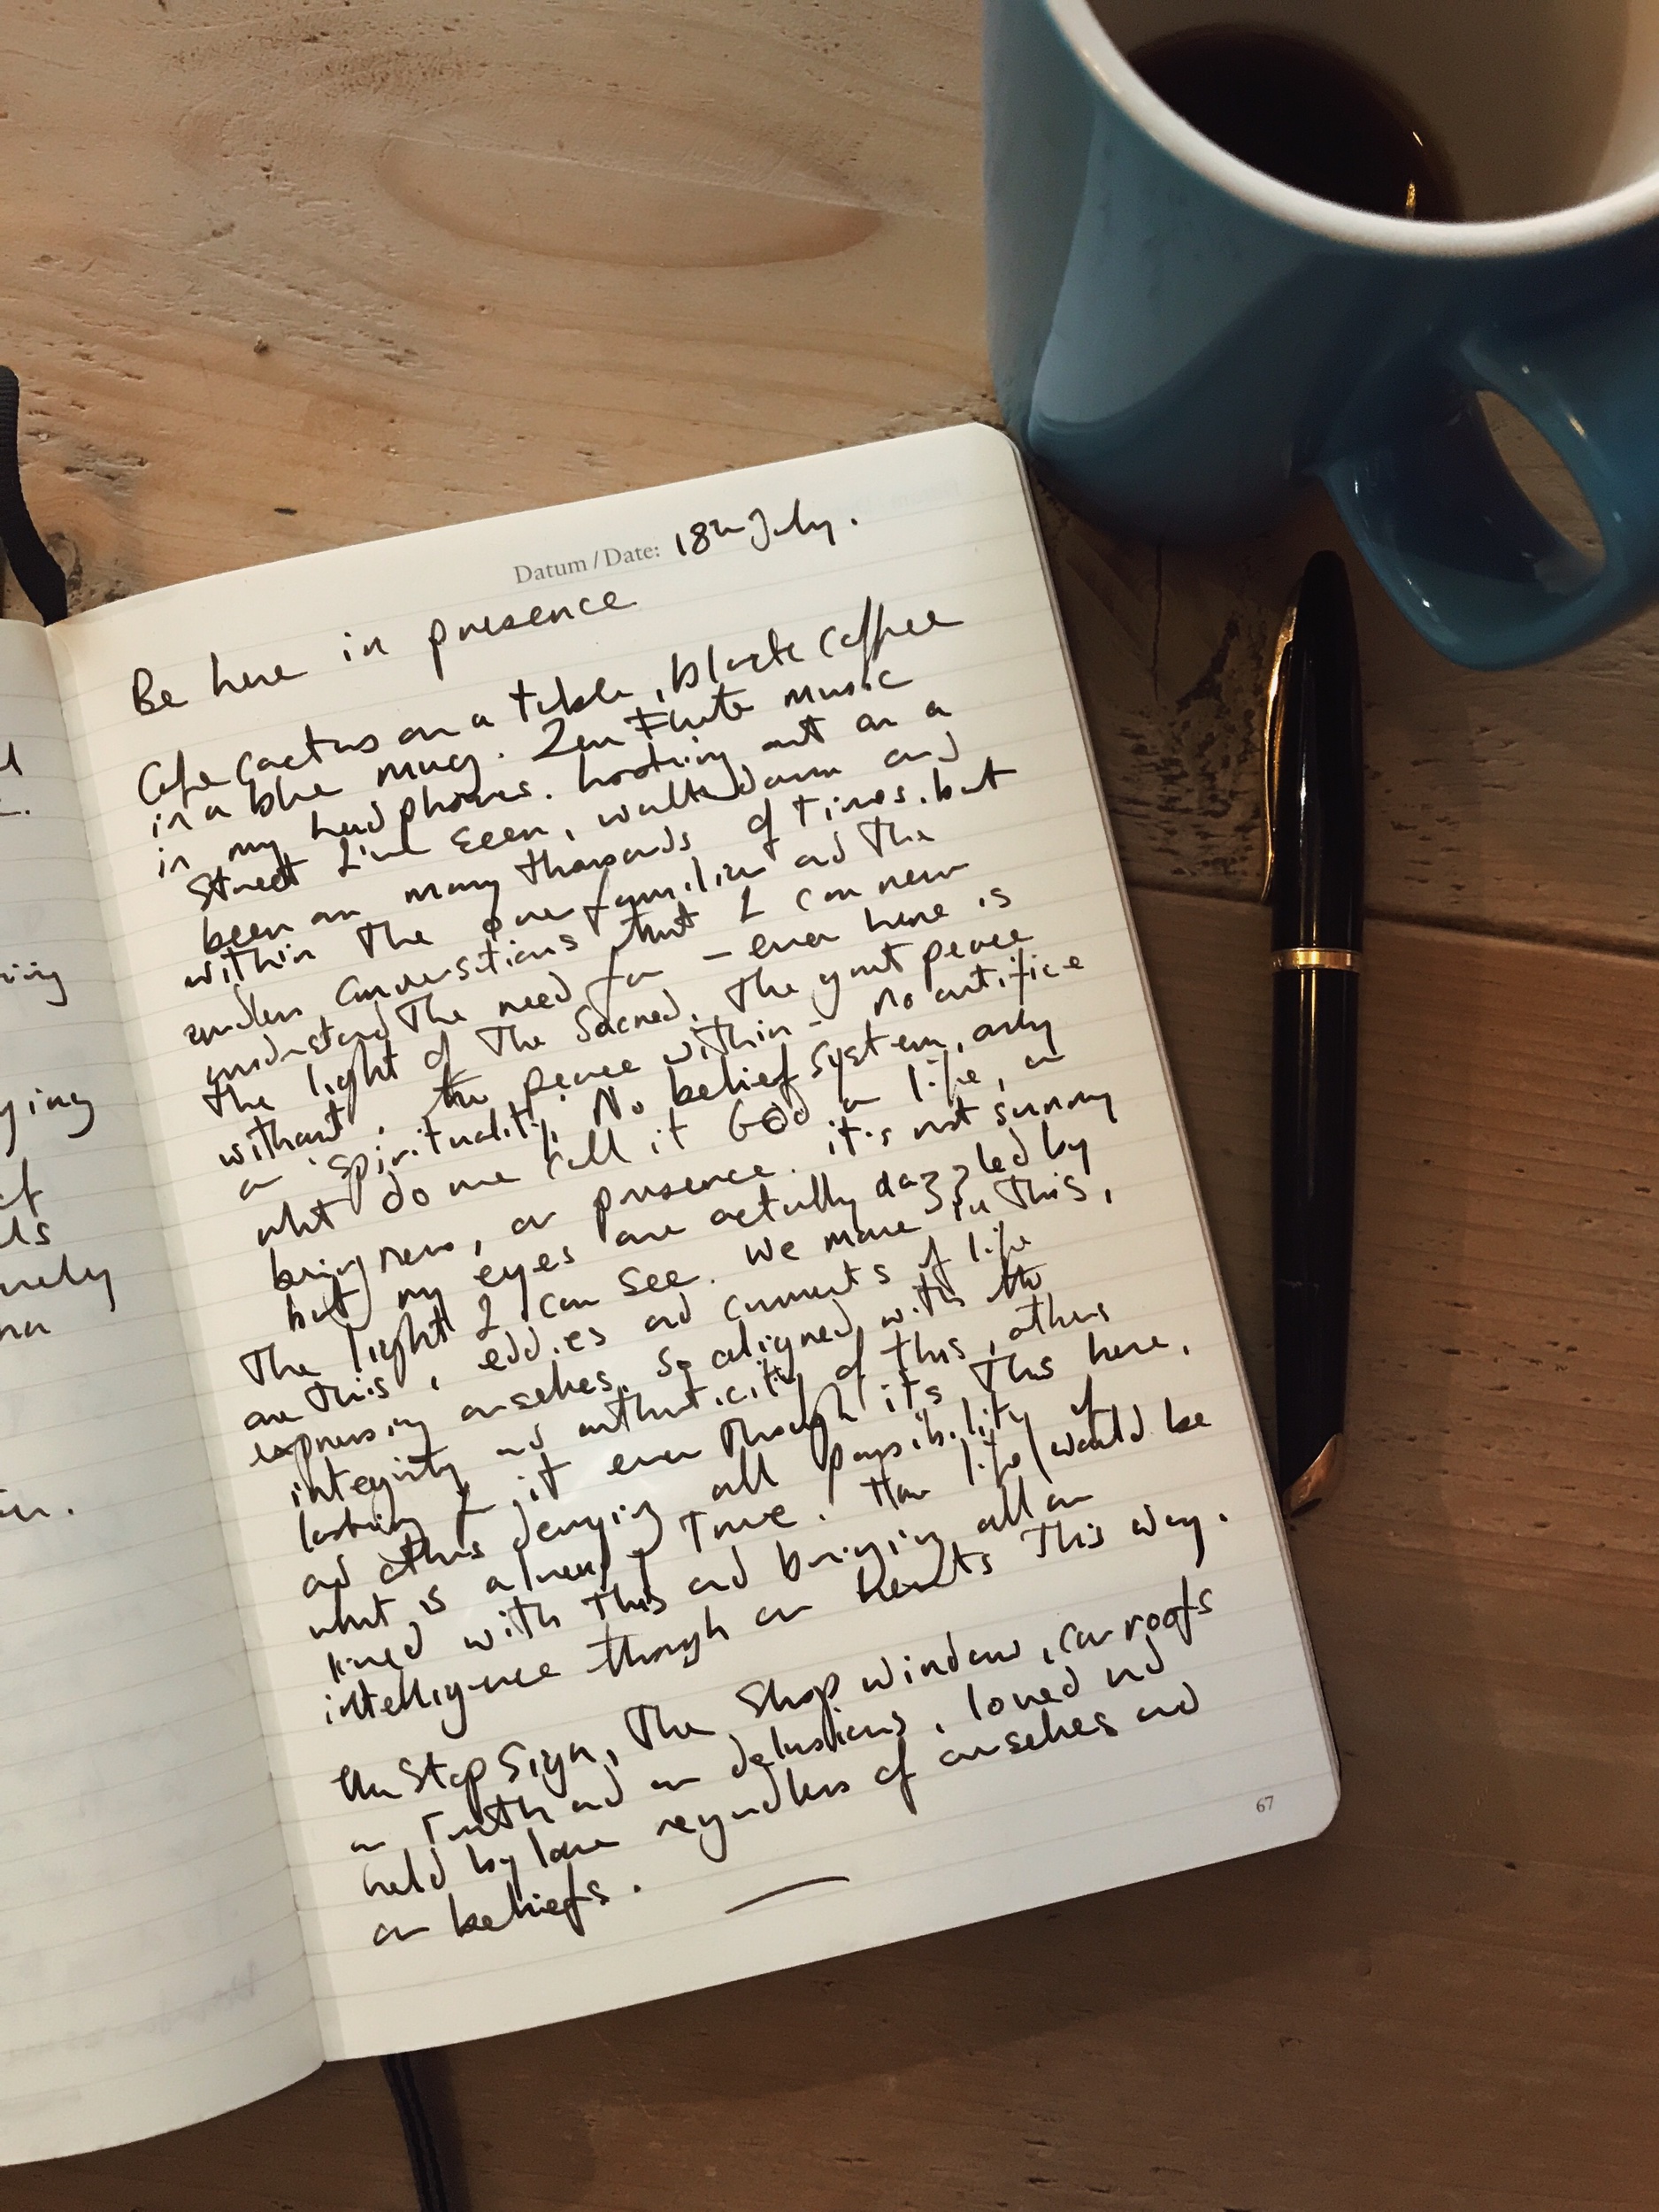 Datum / Date: 18th July.
Be here in presence
Cafe Cactus on a table, black coffee
in a blue mug. Zen Flute music
in my headphones. Looking out on a
street I've seen, walked down and
been on many thousands of times. but
within the over familiar and the
endless conversations that I can never
understand the need for - even here is
the light of the Sacred. The great peace
without, the peace within - no artifice
or spirituality. No belief system, only
what do we call it God or life, or
being ness, or presence. it's not sunny
but my eyes are actually dazzled by
the light I can see. We move in this,
are this, eddies and currents of life
expressing ourselves. So aligned with the
integrity and authenticity of this, others
looking for it even though its this here,
and others denying all possibility of
what is already true. How life would be
lined with this and bringing all our
intelligence through our hearts this way.
The Stop Sign, The Shop window, car roofs
our Truth and our delusions, loved and
held by love regardless of ourselves and
our beliefs.
67
ring
ying
of
ls
nely